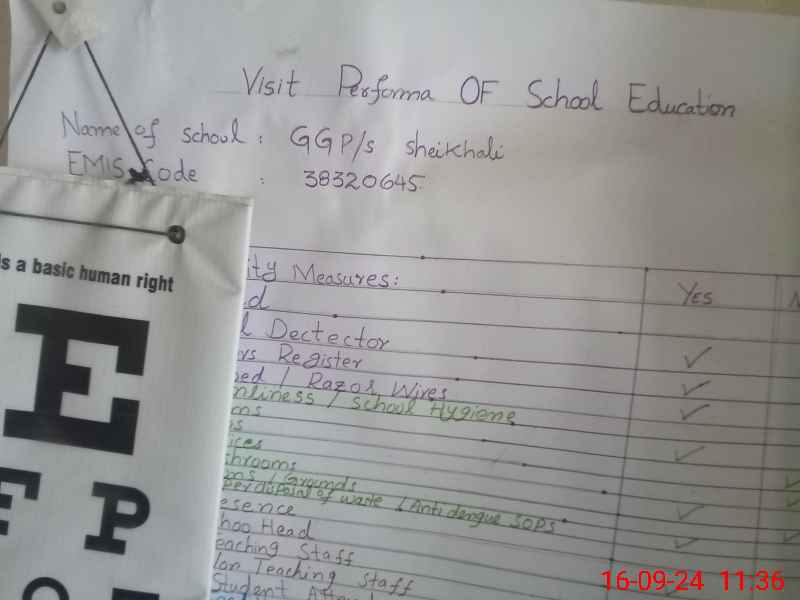 Visit Performa OF School Education
Name of school : GGP/s sheikhali
EMIS Code : 38320645
ity Measures: YES N
d
l Dectector
rs Register
ed / Razor Wires
nliness / School Hygiene
ms
ices
hrooms
ms / Grounds
disposal of waste / Anti dengue SOPs
esence
hoo Head
eaching Staff
on Teaching staff
Student
s a basic human right
E
F P
16-09-24 11:36